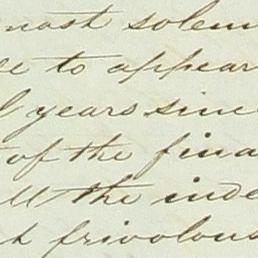 most solem
to appear
years since
of the fina
the inde
frivolous